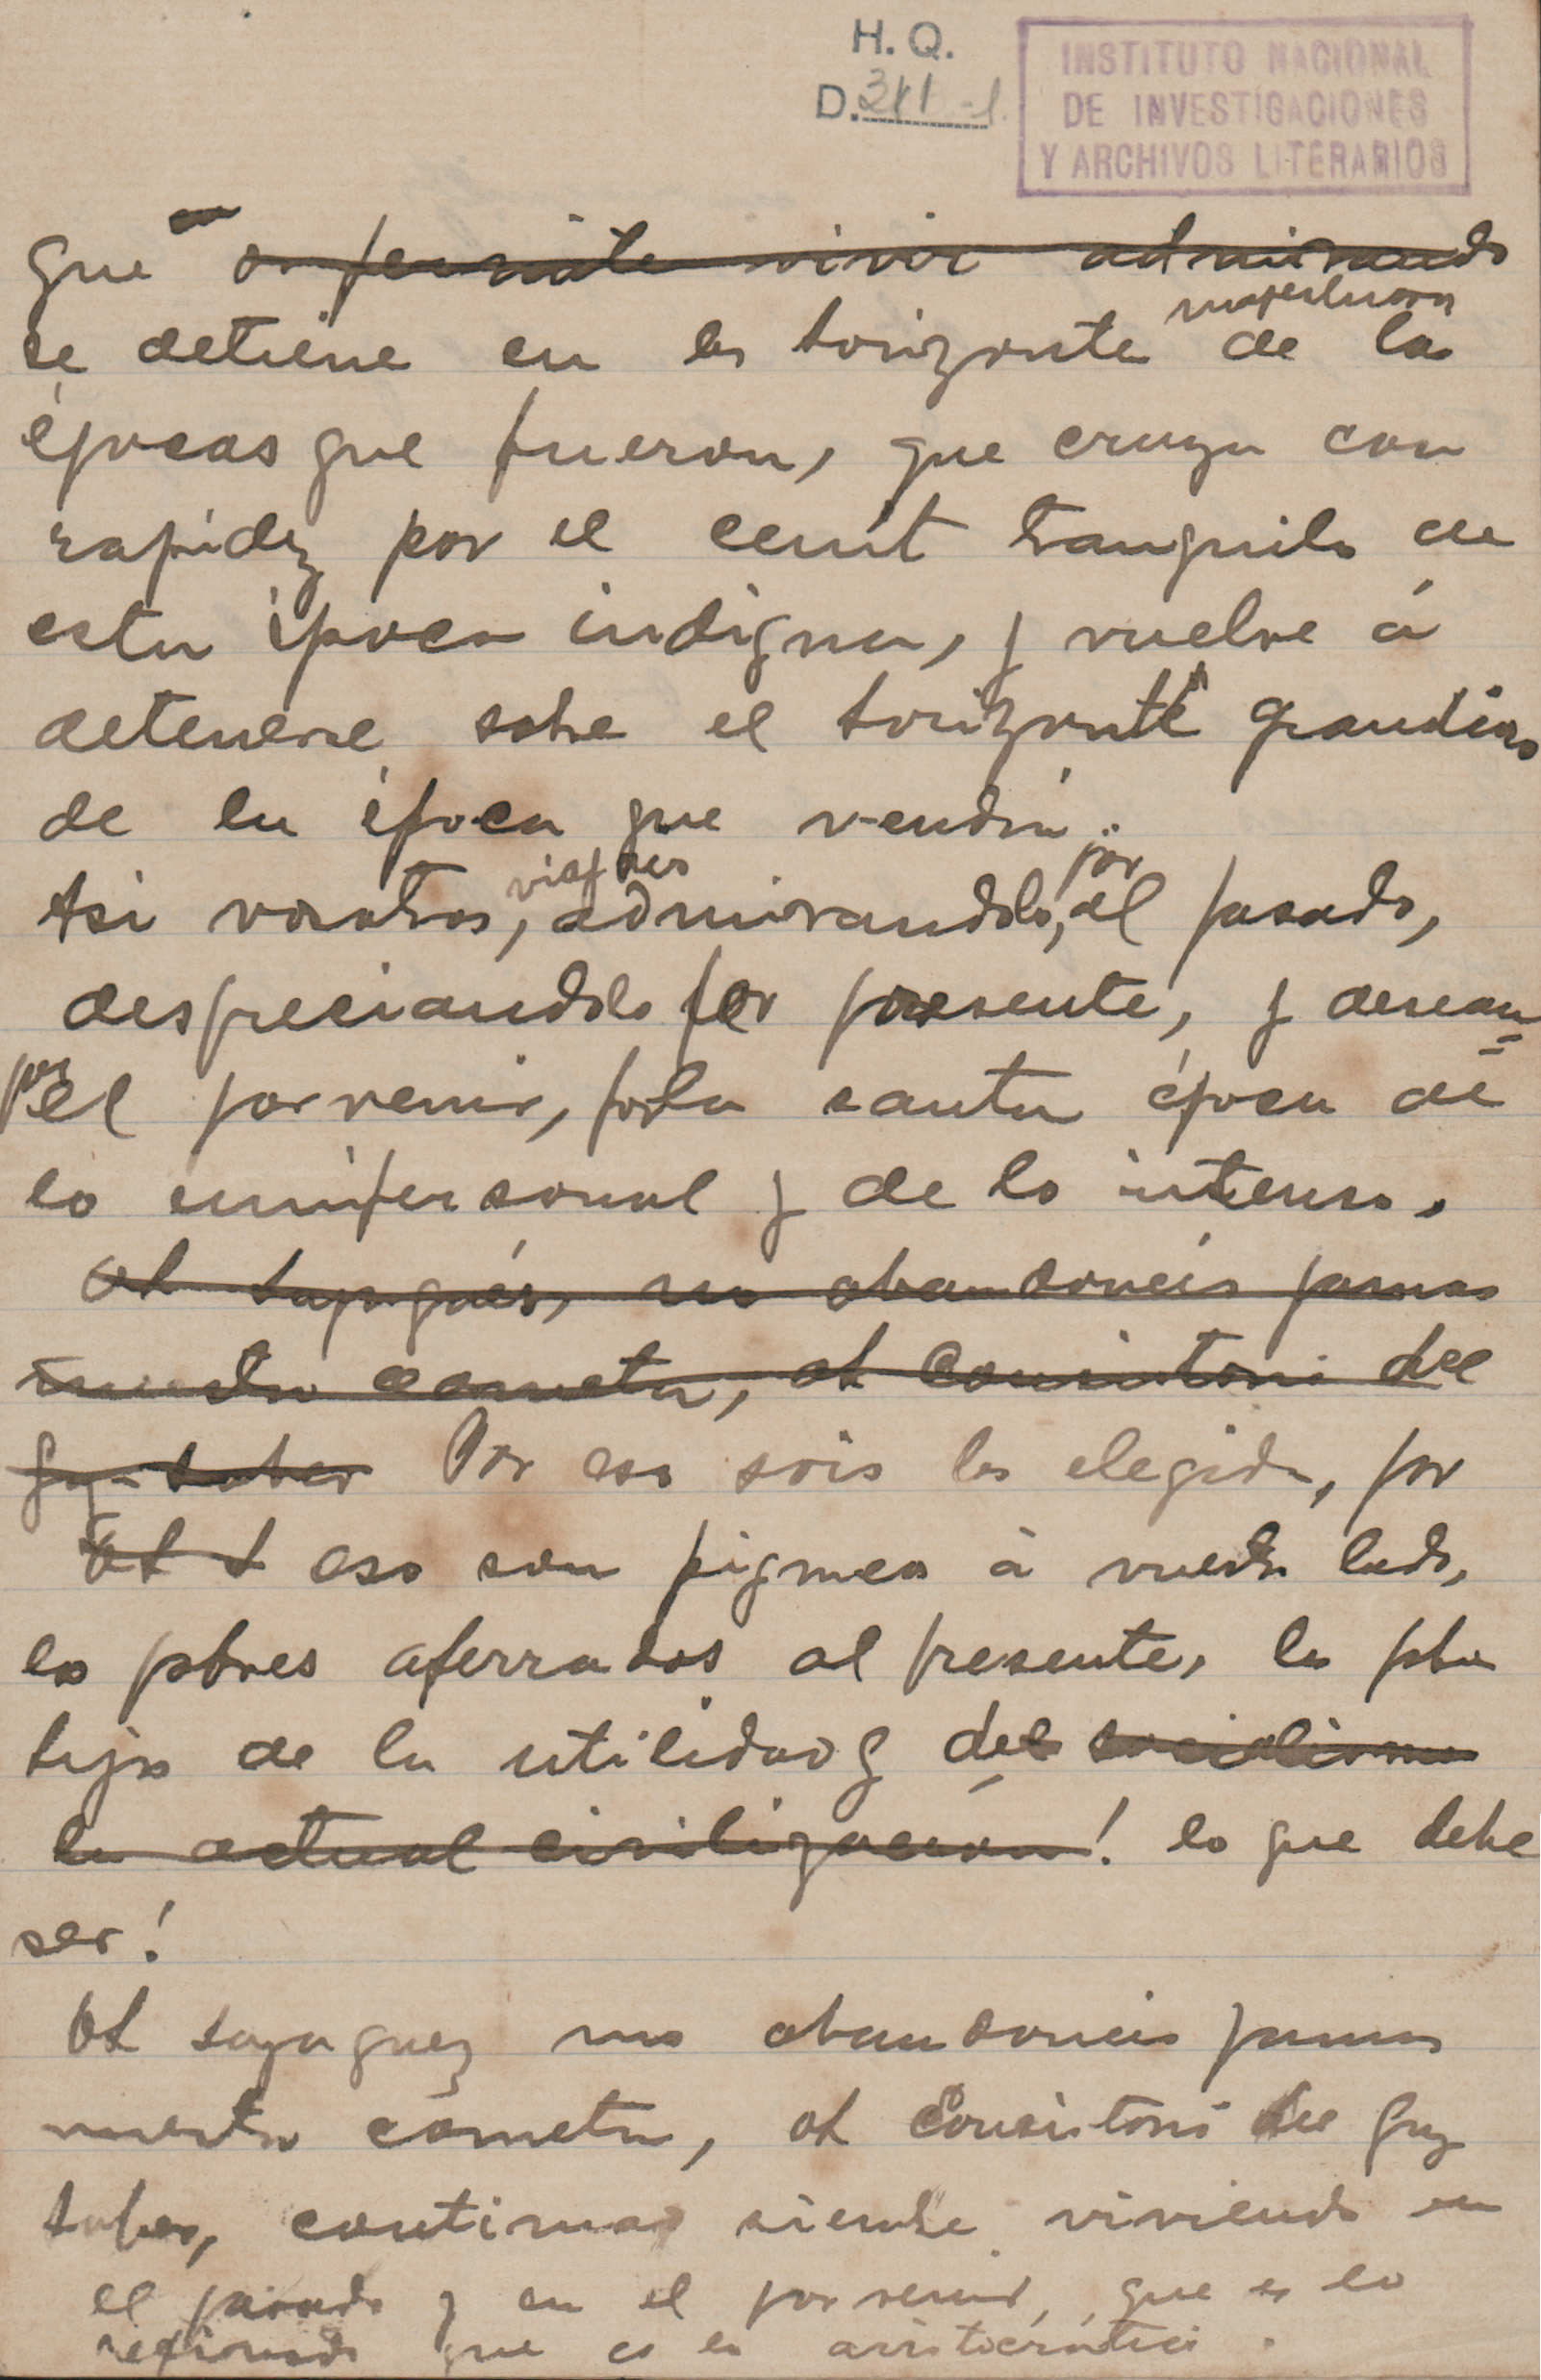 H. Q.
D. 311-1.
INSTITUTO NACIONAL
DE INVESTIGACIONES
Y ARCHIVOS LITERARIOS
que vivir admirando
se detiene en los horizontes majestuosos de las
épocas que fueron, que cruza con
rapidez por el cenit tranquilo de
esta época indigna, y vuelve á
detenerse sobre el horizonte grandioso
de la época que vendrá.
Asi vosotros, viajáis admirandolo, por el pasado,
despreciandolo por presente, y desean=
por el porvenir, por la santa época de
lo unipersonal y de lo intenso.
Oh sayagués, no abandoneis jamas
nuestro cometa, oh Consistorio del
gay saber Por eso sois los elegidos, por
Oh eso son pigmeos á vuestro lado,
los pobres aferrados al presente, los pobres
hijos de la utilidad y del socialismo
la actual civilizacion! lo que debe
ser!
Oh sayaguez no abandoneis jamas
nuestro cometa, oh Consistorio del gay
saber, continuad siempre viviendo en
el pasado y en el porvenir, que es lo
refinado que es lo aristocrático.